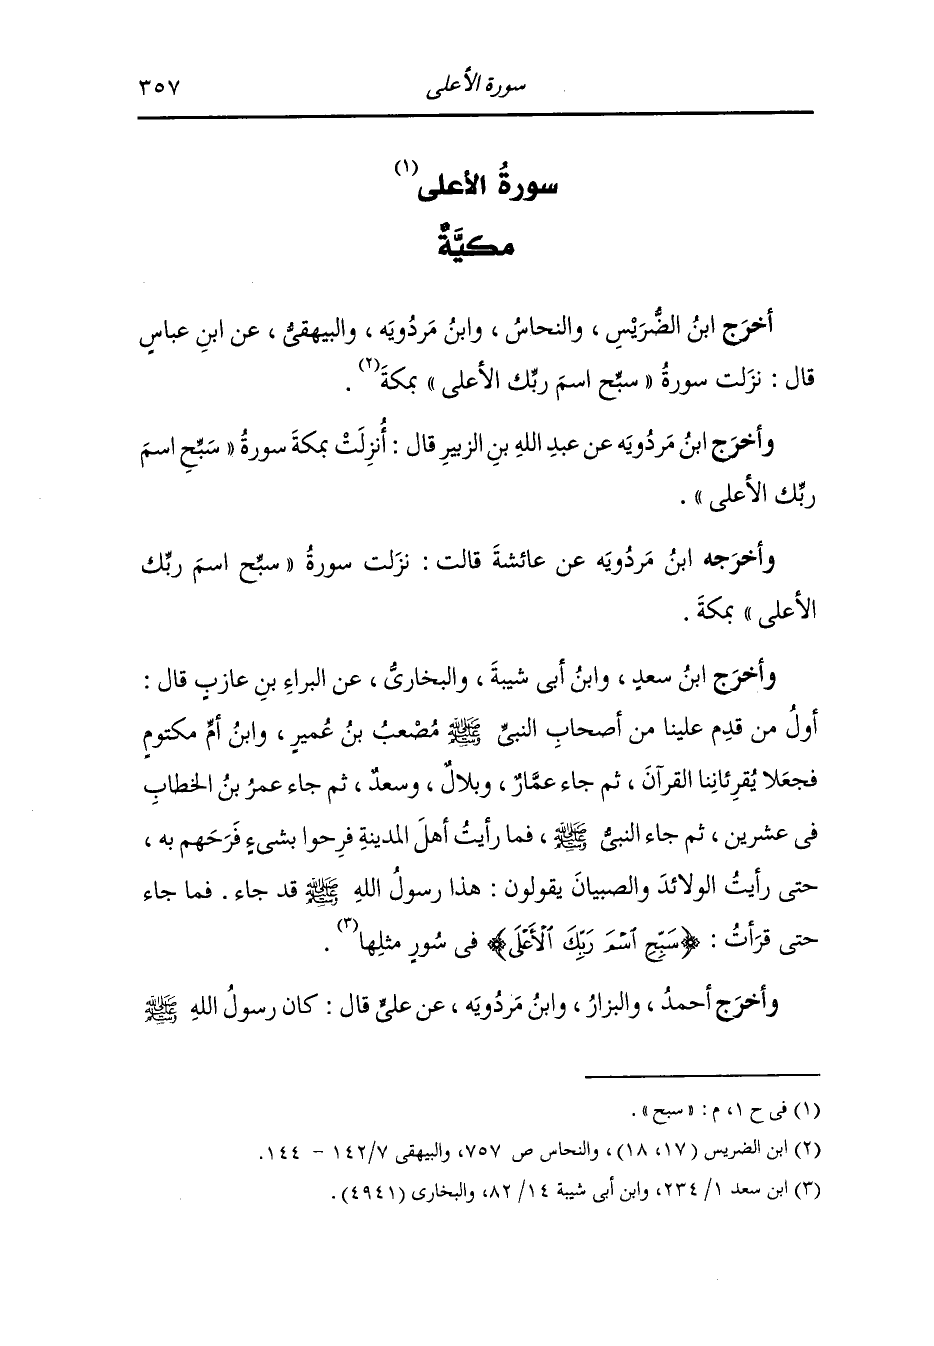 سورة الأعلى ٣٥٧
سورةُ الأعلى(١)
مكيَّةٌ
أخرَج ابنُ الضُّرَيْسِ ، والنحاسُ ، وابنُ مَردُويَه ، والبيهقىُّ ، عن ابنِ عباسٍ
قال : نزَلت سورةُ « سبِّح اسمَ ربِّك الأعلى » بمكةَ(٢) .
وأخرَج ابنُ مَردُويَه عن عبدِ اللهِ بنِ الزبيرِ قال : أُنزِلَتْ بمكةَ سورةُ « سَبِّحِ اسمَ
ربِّك الأعلى » .
وأخرَجه ابنُ مَردُويَه عن عائشةَ قالت : نزَلت سورةُ « سبِّح اسمَ ربِّك
الأعلى » بمكةَ .
وأخرَج ابنُ سعدٍ ، وابنُ أبى شيبةَ ، والبخارىُّ ، عن البراءِ بنِ عازبٍ قال :
أولُ من قدِم علينا من أصحابِ النبىِّ ﷺ مُصْعبُ بنُ عُميرٍ ، وابنُ أمِّ مكتومٍ
فجعَلا يُقرِئانِنا القرآنَ ، ثم جاء عمَّارٌ ، وبلالٌ ، وسعدٌ ، ثم جاء عمرُ بنُ الخطابِ
فى عشرين ، ثم جاء النبىُّ ﷺ ، فما رأيتُ أهلَ المدينةِ فرِحوا بشىءٍ فَرَحَهم به ،
حتى رأيتُ الولائدَ والصبيانَ يقولون : هذا رسولُ اللهِ ﷺ قد جاء . فما جاء
حتى قرَأتُ : ﴿سَبِّحِ ٱسْمَ رَبِّكَ ٱلْأَعْلَى﴾ فى سُورٍ مثلِها(٣) .
وأخرَج أحمدُ ، والبزارُ ، وابنُ مَردُويَه ، عن علىٍّ قال : كان رسولُ اللهِ ﷺ
(١) فى ح ١، م : « سبح » .
(٢) ابن الضريس (١٧، ١٨)، والنحاس ص ٧٥٧، والبيهقى ٧/ ١٤٢ – ١٤٤ .
(٣) ابن سعد ١/ ٢٣٤، وابن أبى شيبة ١٤/ ٨٢، والبخارى (٤٩٤١) .